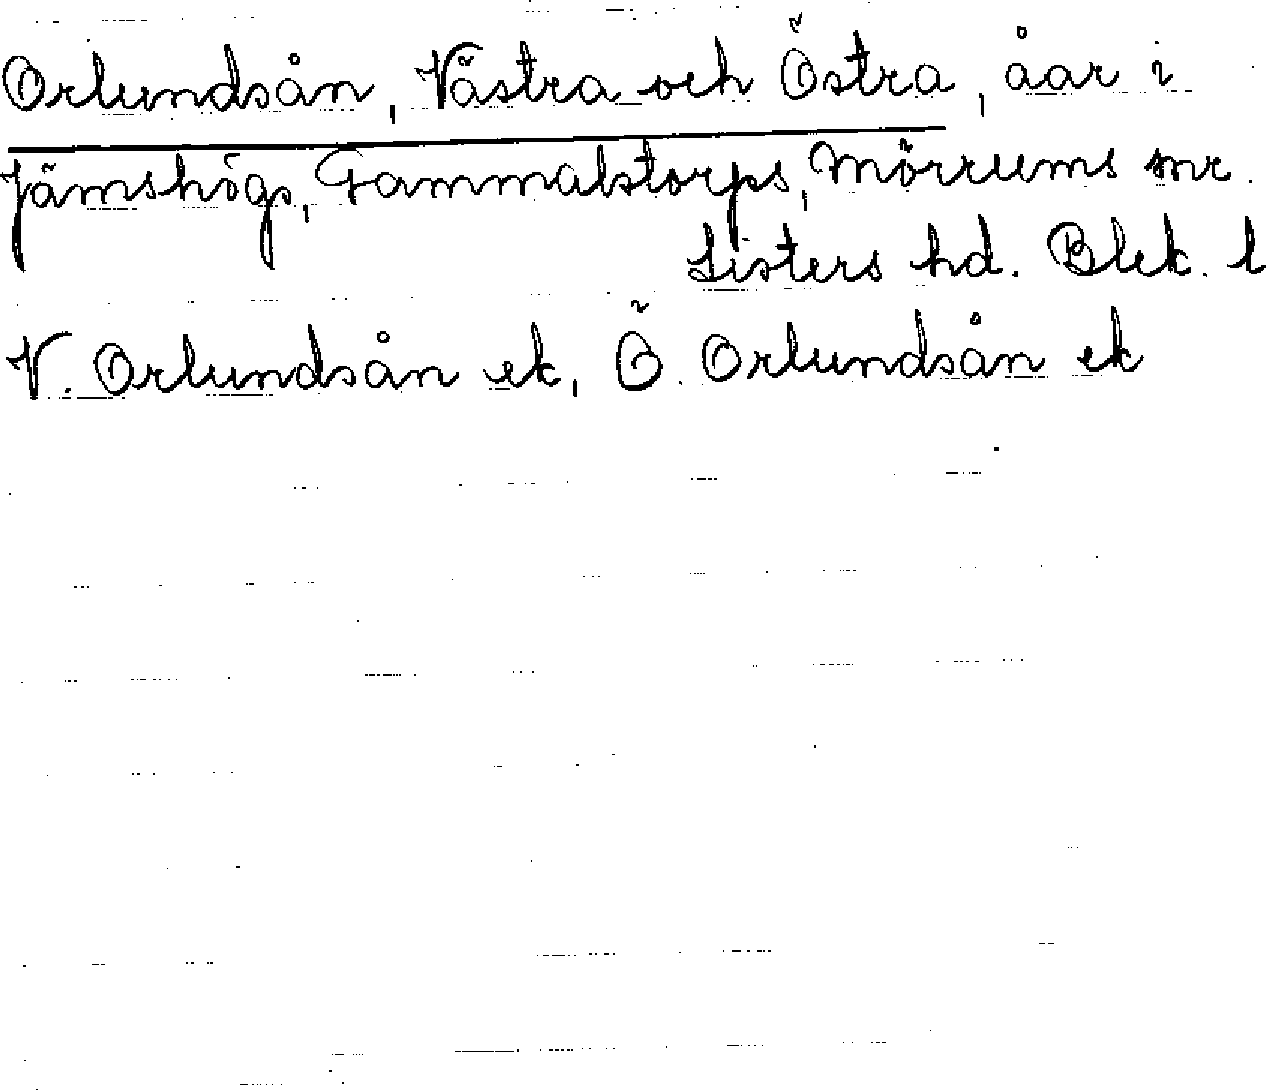 Orlundsån, Västra och Östra, åar i
Jämshögs, Gammalstorps, Mörrums snr.
Listers hd. Blek. l
V. Orlundsån ek, Ö. Orlundsån ek